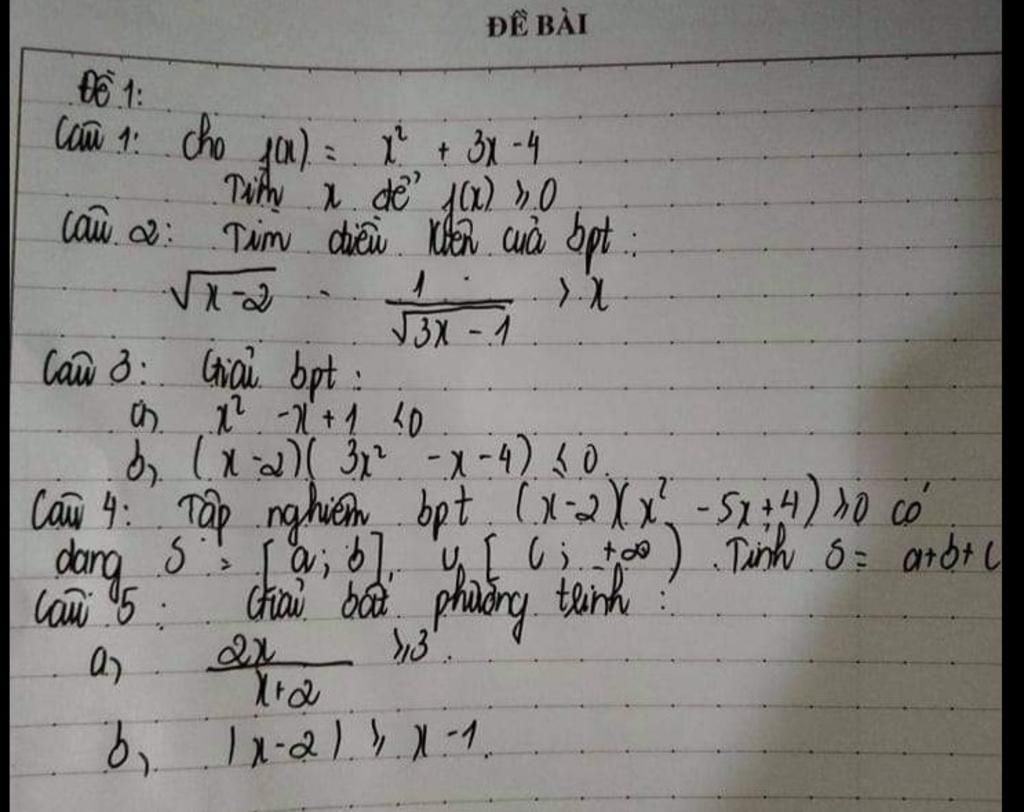 ĐỀ BÀI
Đề 1:
Câu 1: Cho f(x) = x² + 3x - 4
Tìm x để f(x) ≥ 0
Câu 2: Tìm điều kiện của bpt:
√(x-2) - 1/√(3x - 1) > x
Câu 3: Giải bpt:
a, x² - x + 1 < 0
b, (x-2)(3x² - x - 4) ≤ 0
Câu 4: Tập nghiệm bpt (x-2)(x² - 5x + 4) ≥ 0 có
dạng S = [a; b] ∪ [c; +∞). Tính S = a+b+c
Câu 5: Giải bất phương trình:
a, 2x/(x+2) ≥ 3.
b, |x-2| ≥ x - 1.